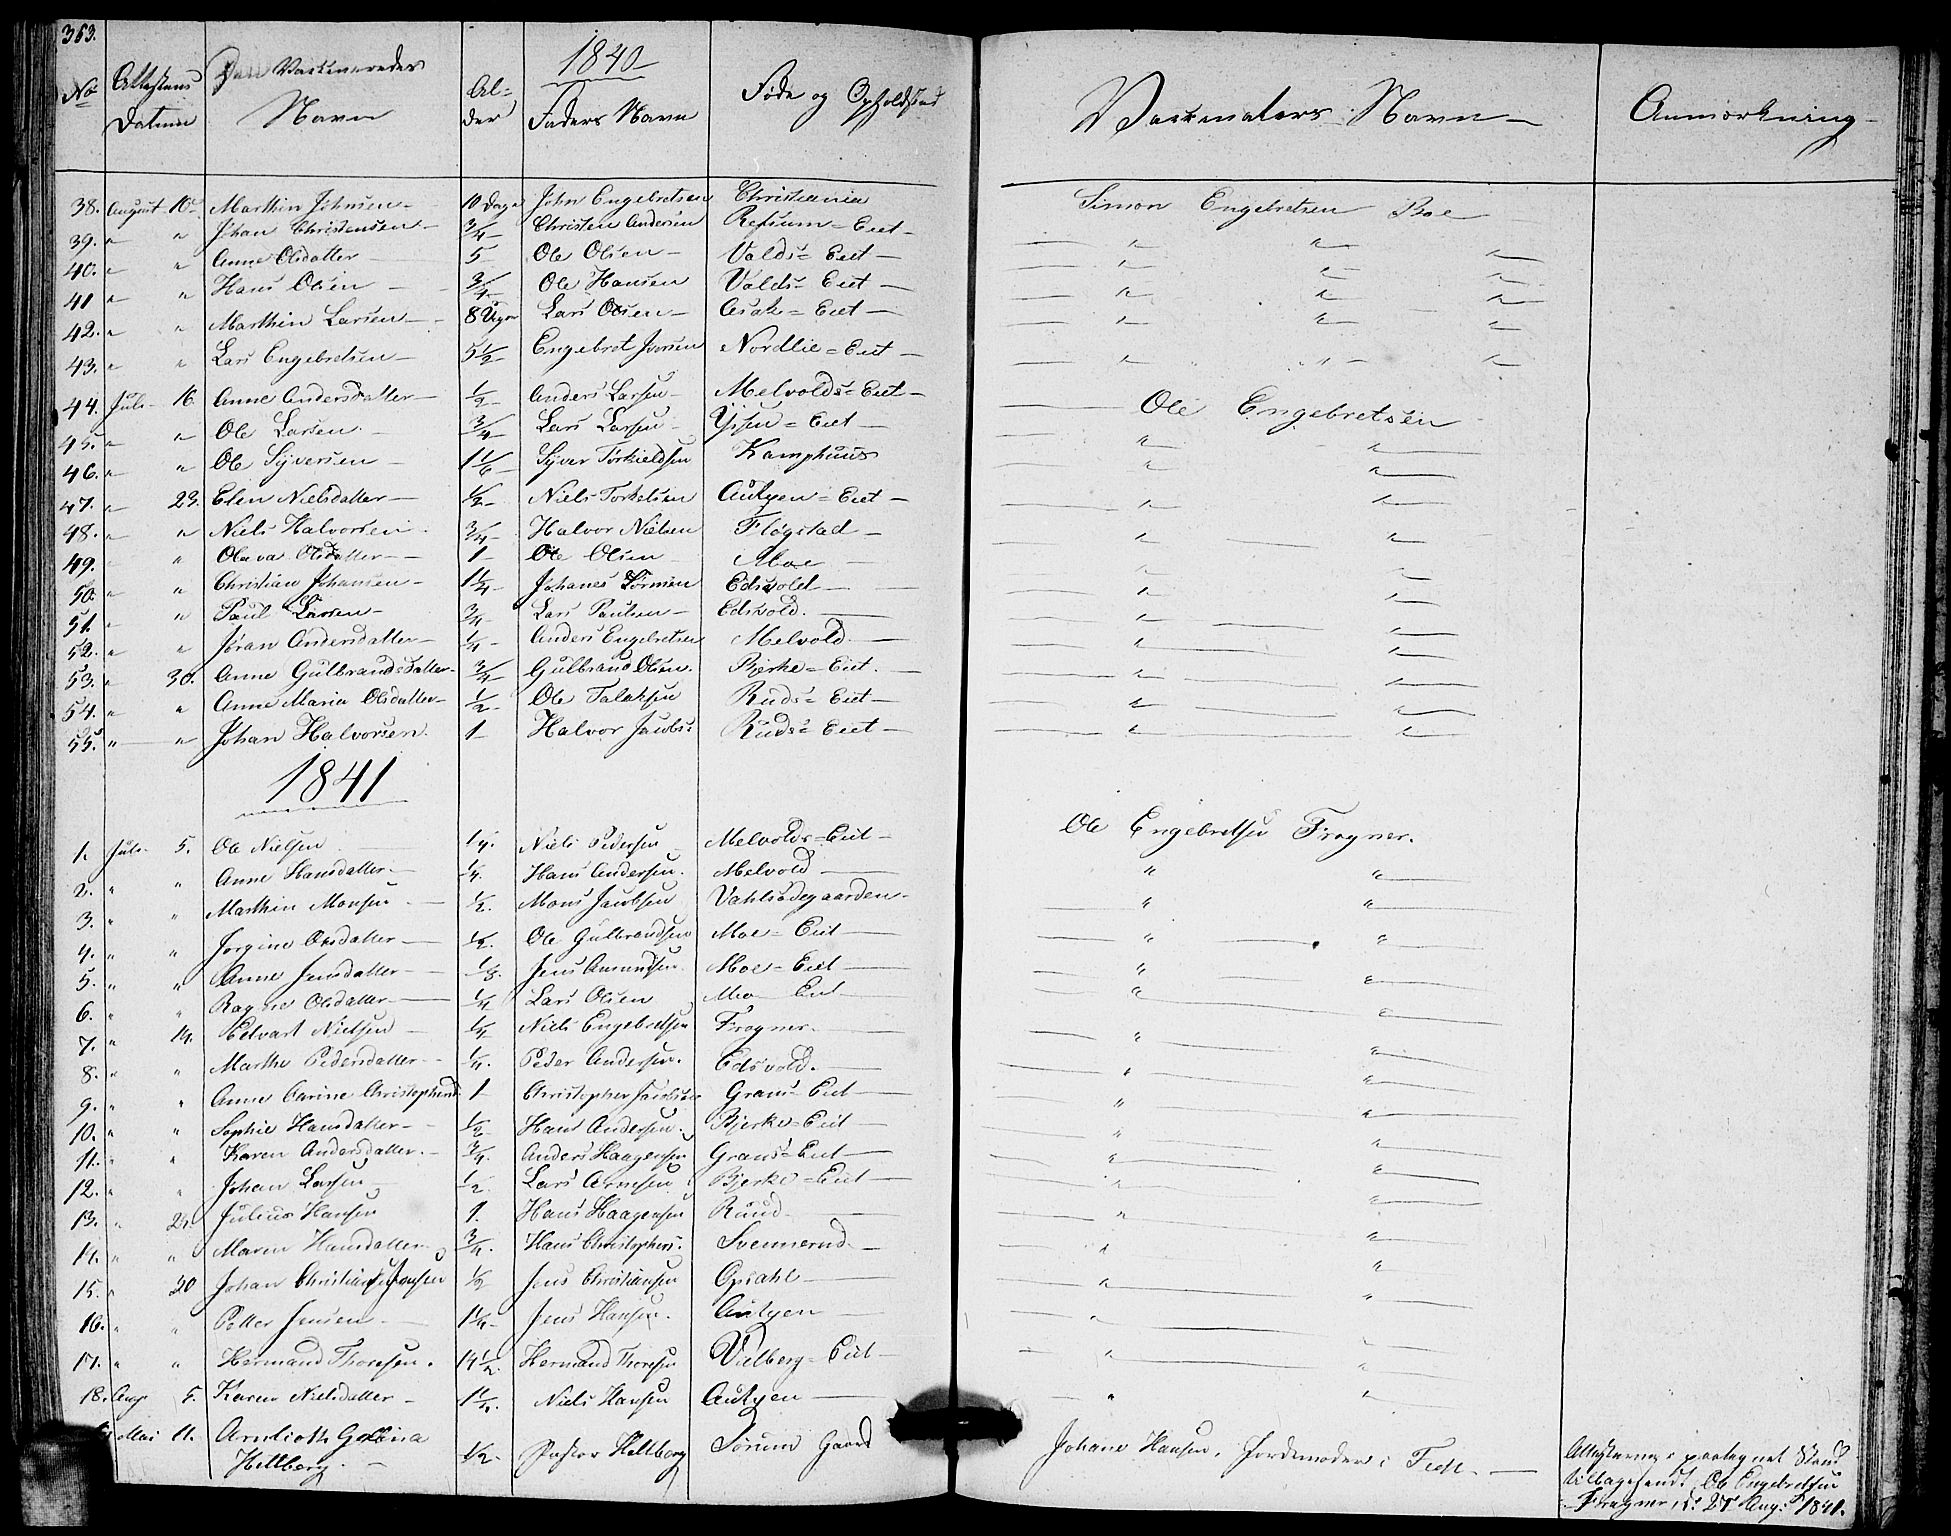 363.
1840
No Attestens Datum Den Vaccineredes Navn Alder Faders Navn Føde og Opholdsted Vaccinators Navn Anmærkning
38. August 10 Marthin Johnsen 10 Dage John Engebretsen Christiania Simon Engebretsen Boe
39. " " Johan Christensen 3/4 Christen Andersen Refsum=Eiet " "
40. " " Anne Olsdatter 5 Ole Olsen Valds=Eiet " " "
41 " " Hans Olsen 3/4 Ole Hansen Valds=Eiet " " "
42. " " Marthin Larsen 8 Uger Lars Olsen Asak=Eiet " " "
43. " " Lars Engebretsen 5 1/2 Engebret Iversen Nordlie=Eiet " " "
44. Juli 16. Anne Andersdatter 1/2 Anders Larsen Melvolds=Eiet Ole Engebretsen
45. " " Ole Larsen 3/4 Lars Larsen =Eiet " "
46. " " Ole Syversen 1 1/6 Syver Torkieldsen Kamphuus " "
47. " 23. Elen Nielsdatter 1/2 Niels Torkelsen Autgen=Eiet " "
48. " " Niels Halvorsen 3/4 Halvor Nielsen Fløgstad " "
49. " Olava Olsdatter 1 Ole Olsen Moe " "
50. " " Christian Johansen 1 1/4 Johanes Edsvold " "
51. " " Paul Larsen 3/4 Lars Paulsen Edsvold. " "
52. " " Jøran Andersdatter 1/4 Anders Engebretsen Melvold " "
53. " 30. Anne Gulbrandsdatter 3/4 Gulbrand Olsen. Bjerke=Eiet. " "
54. " " Anne Maria Olsdatter 1/2 Ole Talaksen Ruds=Eiet " "
55. " " Johan Halvorsen. 1 Halvor Jacobs: Ruds=Eiet " "
1841
1. Juli 5. Ole Nielsen 1/4. Niels Pedersen Melvolds=Eiet Ole Engebretsen Frogner.
2. " " Anne Hansdatter 1/4. Hans Andersen. Melvold " "
3. " " Marthin Monsen 1/2. Mons Jacobsen Vahlsødegaarden. " "
4. " " Jørgine Olsdatter 1/2. Ole Gulbrandsen Moe=Eiet " "
5. " " Anne Jensdatter 1/8. Jens Amundsen. Moe=Eiet " "
6. " " Olsdatter 1/4 Lars Olsen Moe Eiet " "
7. " 14. Edvart Nielsen 1/4 Niels Engebretsen Frogner. " "
8. " " Marthe Pedersdatter 1/4. Peder Andersen. Edsvold. " "
9. " " Anne Carine Christophersd 1 Christopher Jacobsen Grans=Eiet " "
10. " " Sophie Hansdatter 1/2 Hans Andersen. Bjerke=Eiet " "
11. " " Karen Andersdatter. 3/4. Anders Haagensen Grans=Eiet " "
12. " " Johan Larsen 1/2 Lars Arnesen Bjerke=Eiet " "
13. " 24. Julius Hansen 1. Hans Haagensen Ruud " "
14. " " Maren Hansdatter 3/4. Hans Christophers. Svennerud. " "
15. " 20 Johan Christian Jensen 1/2 Jens Christiansen Opsahl " "
16. " " Petter Jensen 1 1/4. Jens Hansen. Autgen " "
17. " " Hermand Thoresen. 14 1/2. Hermand Thoresen Vilberg=Eiet " "
18. Aug 5. Karen Nielsdatter 1 Niels Hansen Autgen " "
Mai 11. Gotlina
Hellberg 1/2. Pastor Hellberg Sørum Gaard Johane Hansen, Jordemoder i Feth.
Attesterne i paategnet Stand
tilbagesendt Ole Engebretsen
Frogner, d: 27 Aug: 1841.